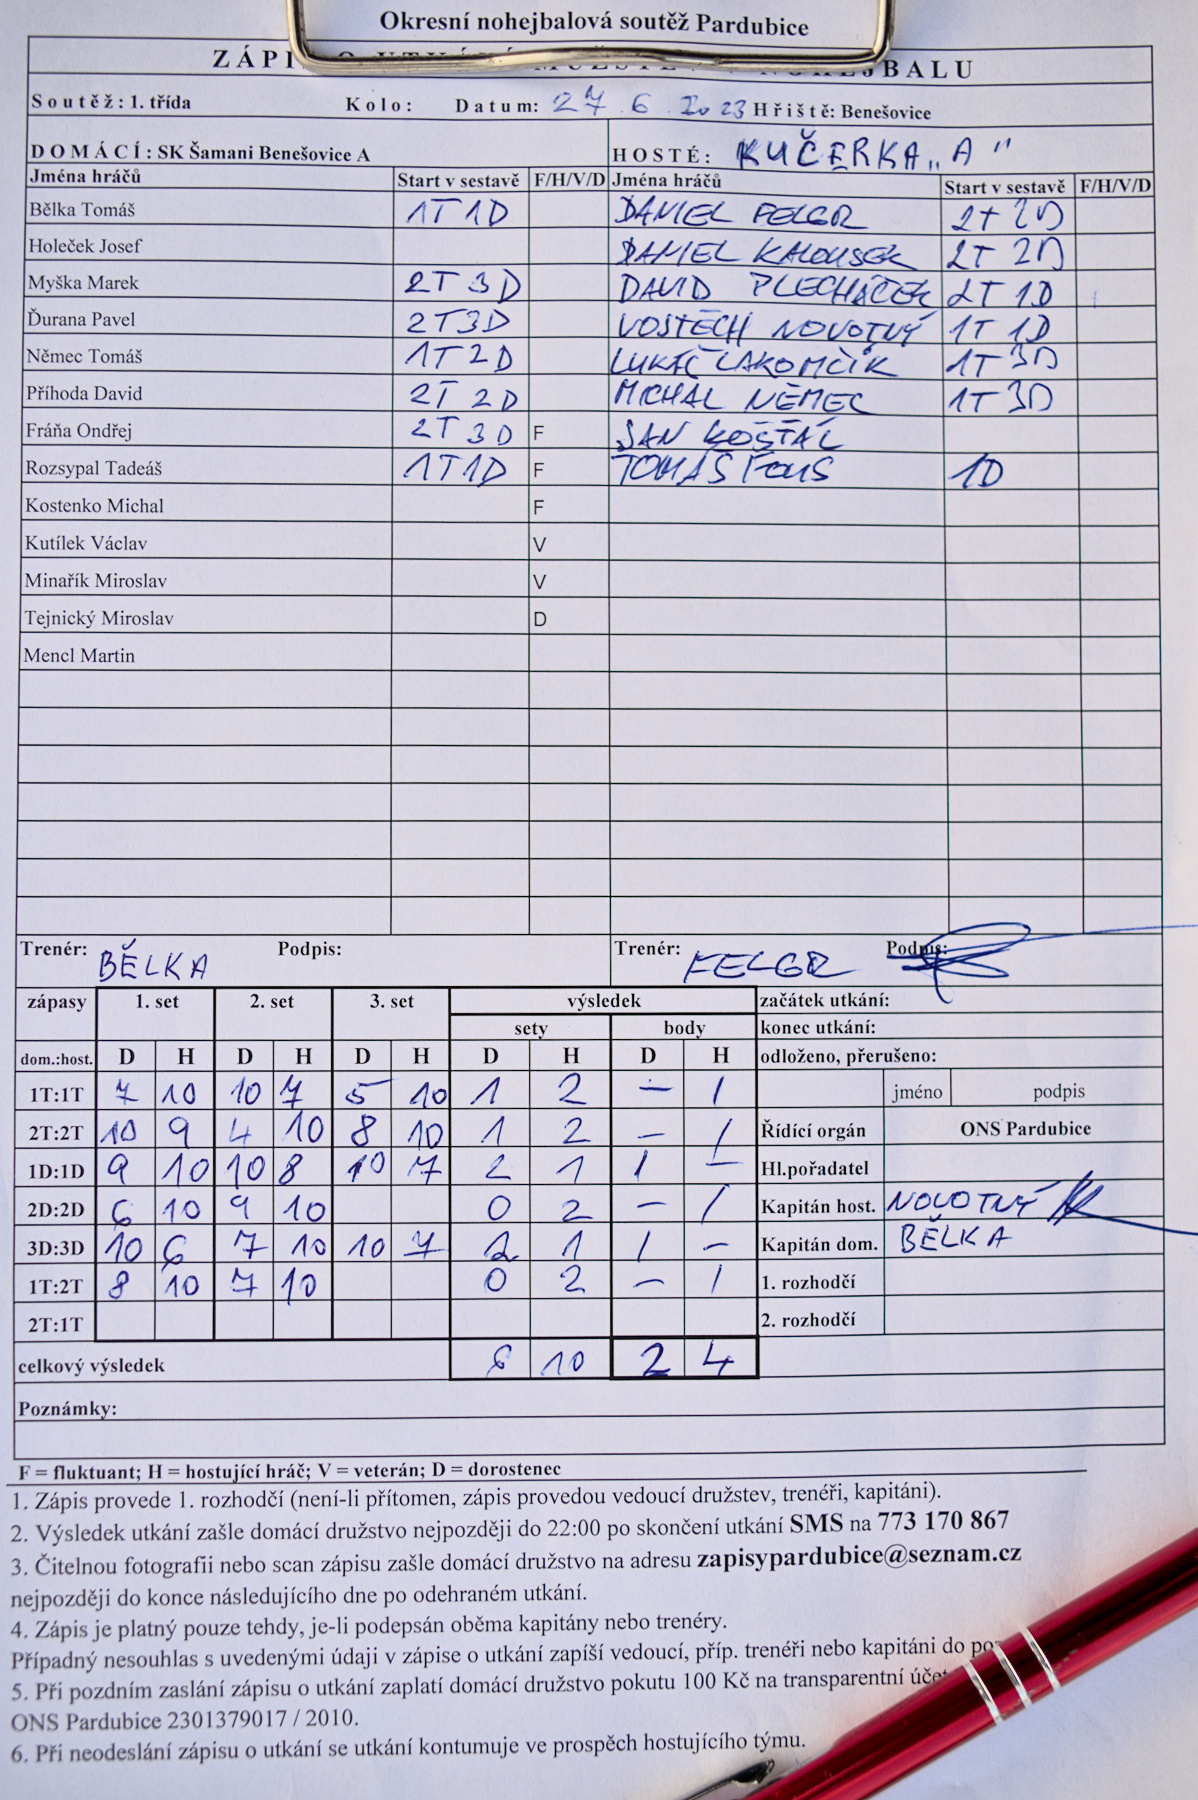 Okresní nohejbalová soutěž Pardubice
ZÁPI NOHEJBALU
Soutěž: 1. třída Kolo: Datum: 27. 6. 2023 Hřiště: Benešovice
DOMÁCÍ: SK Šamani Benešovice A HOSTÉ: KUČERKA „A"
Jména hráčů Start v sestavě F/H/V/D Jména hráčů Start v sestavě F/H/V/D
Bělka Tomáš 1T 1D DANIEL FELGR 2T 2D
Holeček Josef DANIEL KALOUSEK 2T 2D
Myška Marek 2T 3D DAVID PLECHÁČEK 2T 1D
Ďurana Pavel 2T 3D VOSTĚCH NOVOTNÝ 1T 1D
Němec Tomáš 1T 2D LUKÁČ LAKOMČÍK 1T 3D
Příhoda David 2T 2D MICHAL NĚMEC 1T 3D
Fráňa Ondřej 2T 3D F JAN KOŠŤÁL
Rozsypal Tadeáš 1T 1D F TOMÁŠ FOUS 1D
Kostenko Michal F
Kutílek Václav V
Minařík Miroslav V
Tejnický Miroslav D
Mencl Martin
Trenér: BĚLKA Podpis: Trenér: FELGR Podpis:
zápasy 1. set 2. set 3. set výsledek začátek utkání:
sety body konec utkání:
dom.:host. D H D H D H D H D H odloženo, přerušeno:
1T:1T 7 10 10 7 5 10 1 2 – 1 jméno podpis
2T:2T 10 9 4 10 8 10 1 2 – 1 Řídící orgán ONS Pardubice
1D:1D 9 10 10 8 10 7 2 1 1 – Hl.pořadatel
2D:2D 6 10 9 10 0 2 – 1 Kapitán host. NOVOTNÝ
3D:3D 10 6 7 10 10 7 2 1 1 – Kapitán dom. BĚLKA
1T:2T 8 10 7 10 0 2 – 1 1. rozhodčí
2T:1T 2. rozhodčí
celkový výsledek 6 10 2 4
Poznámky:
F = fluktuant; H = hostující hráč; V = veterán; D = dorostenec
1. Zápis provede 1. rozhodčí (není-li přítomen, zápis provedou vedoucí družstev, trenéři, kapitáni).
2. Výsledek utkání zašle domácí družstvo nejpozději do 22:00 po skončení utkání SMS na 773 170 867
3. Čitelnou fotografii nebo scan zápisu zašle domácí družstvo na adresu zapisypardubice@seznam.cz
nejpozději do konce následujícího dne po odehraném utkání.
4. Zápis je platný pouze tehdy, je-li podepsán oběma kapitány nebo trenéry.
Případný nesouhlas s uvedenými údaji v zápise o utkání zapíší vedoucí, příp. trenéři nebo kapitáni do
5. Při pozdním zaslání zápisu o utkání zaplatí domácí družstvo pokutu 100 Kč na transparentní účet
ONS Pardubice 2301379017 / 2010.
6. Při neodeslání zápisu o utkání se utkání kontumuje ve prospěch hostujícího týmu.